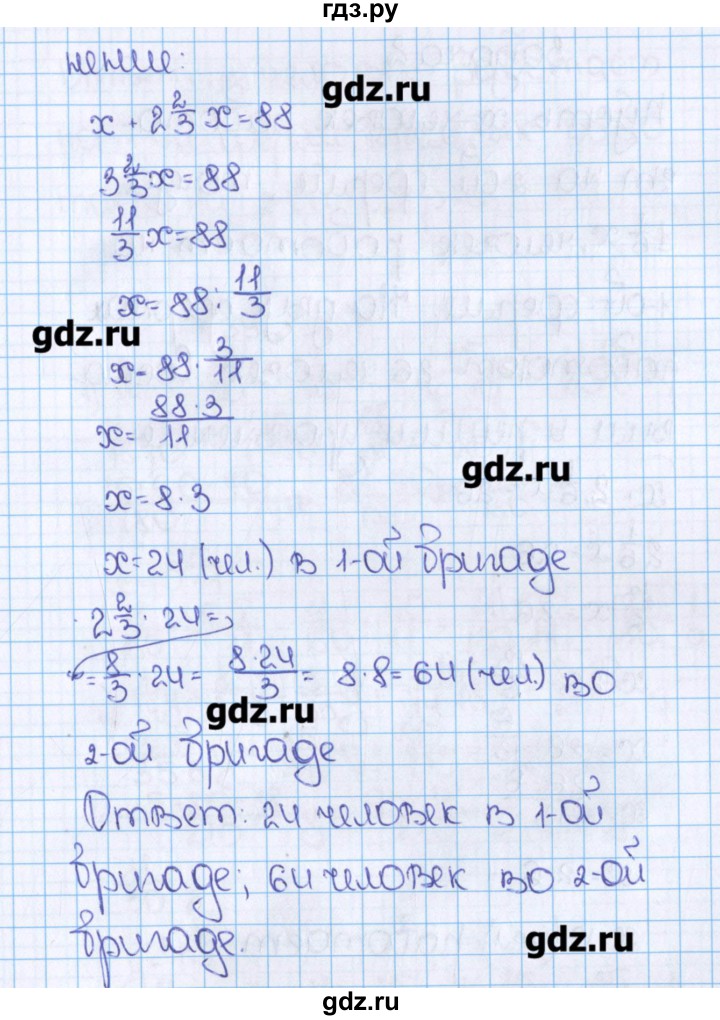 гдз.ру
нение:
gdz.ru
x + 2 2/3 x = 88
3 2/3 x = 88
11/3 x = 88
x = 88 : 11/3
gdz.ru
x = 88 · 3/11
x = 88·3/11
gdz.ru
x = 8 · 3
x = 24 (чел.) в 1-ой бригаде
2 2/3 · 24 =
= 8/3 · 24 = 8·24/3 = 8·8 = 64 (чел.) во
gdz.ru
2-ой бригаде
Ответ: 24 человек в 1-ой
бригаде; 64 человек во 2-ой
бригаде.
gdz.ru
gdz.ru